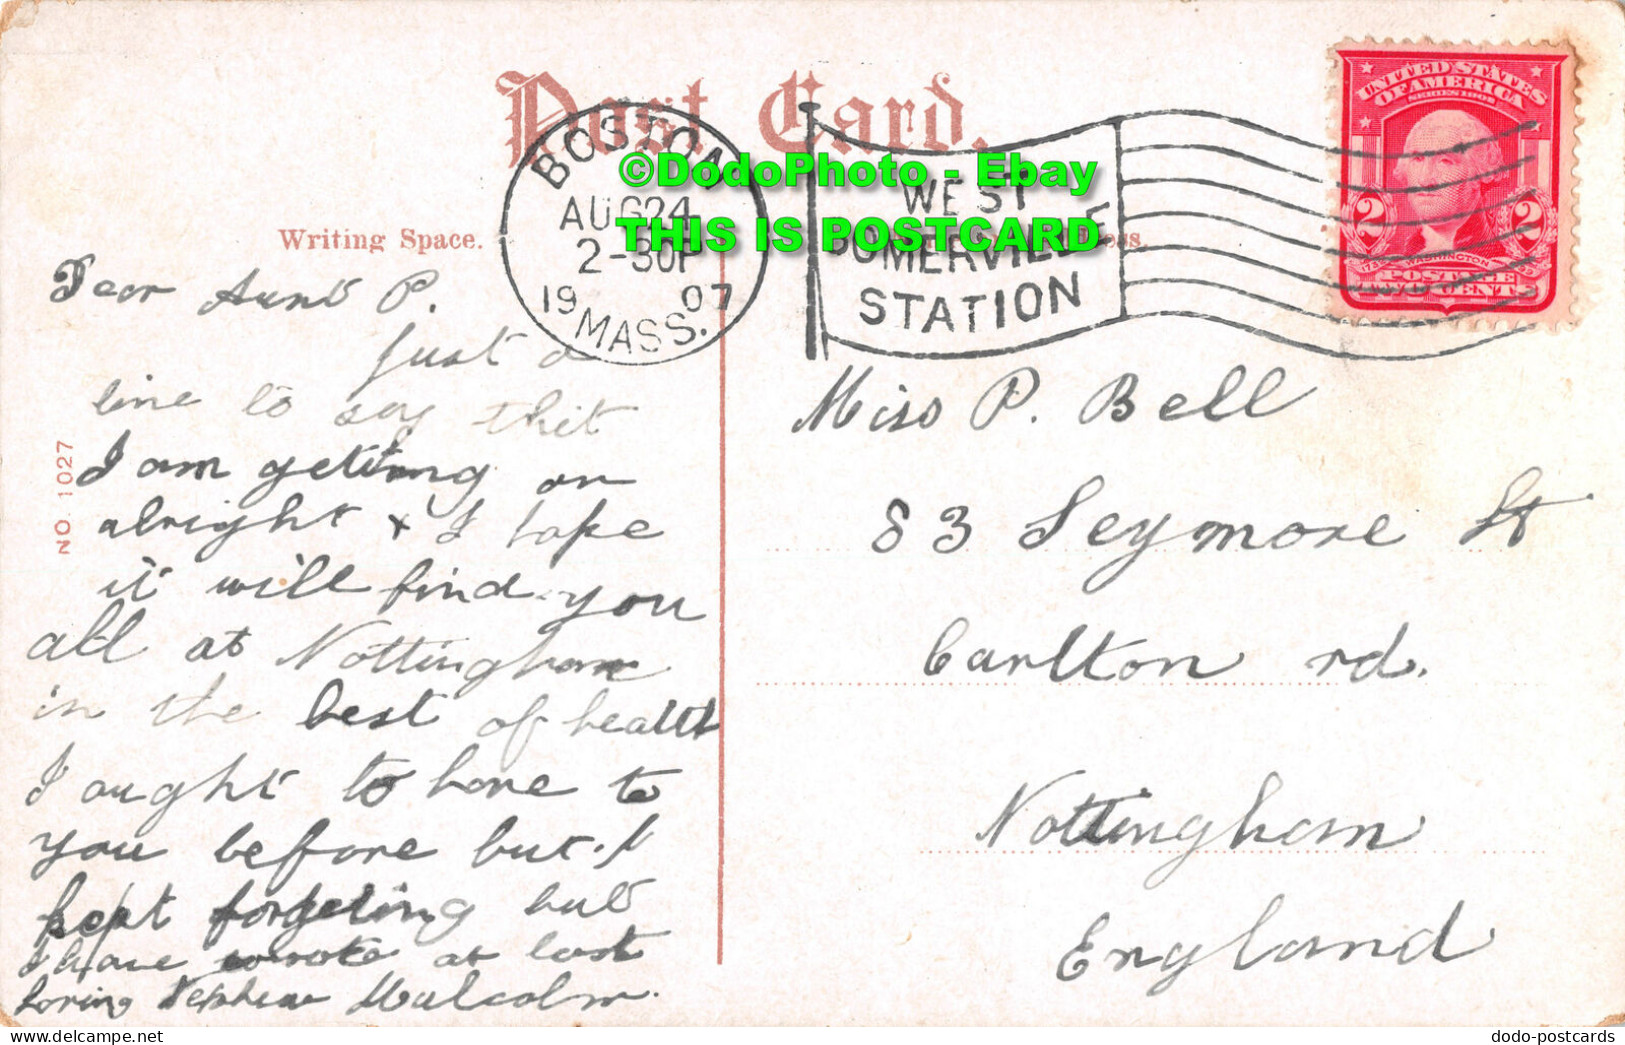 Post Card.
BOSTON
AUG 24
2-30P
1907
MASS.
WEST
SOMERVILLE
STATION
UNITED STATES
OF AMERICA
SERIES 1902
2 2
WASHINGTON
POSTAGE
TWO CENTS
©DodoPhoto - Ebay
THIS IS POSTCARD
Writing Space.
NO. 1027
Dear Aunt P.
Just a
line to say thit
I am getting on
alright & I hope
it will find you
all at Nottingham
in the best of health
I ought to have to
you before but I
kept forgeting but
I have wrote at last
Loving Nephew Malcolm.
Miss P. Bell
83 Seymore St
Carlton rd.
Nottingham
England
dodo-postcards